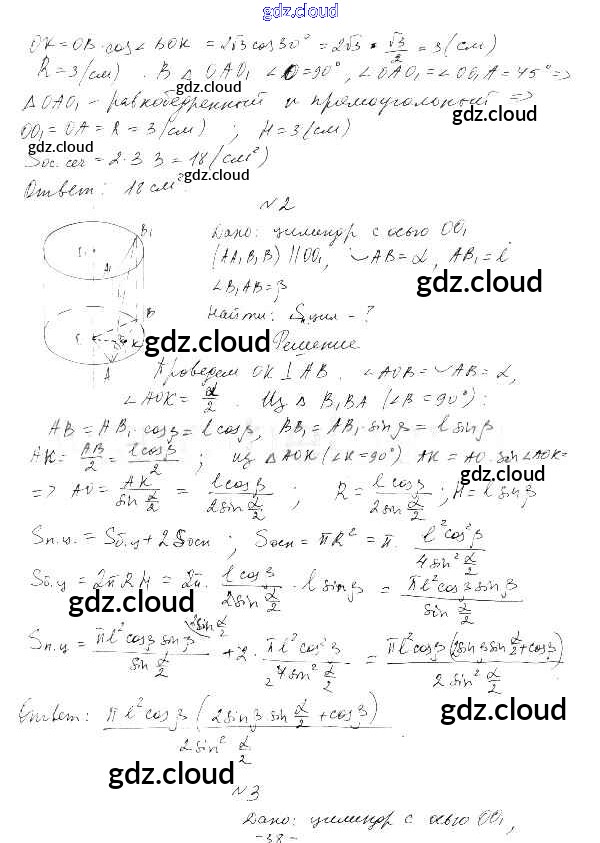 gdz.cloud
OK = OB · cos∠BOK = 2√3 cos 30° = 2√3 · √3/2 = 3 (см)
R = 3 (см). В △ OAO₁ ∠O = 90°, ∠OAO₁ = ∠OO₁A = 45° =>
gdz.cloud
△ OAO₁ - равнобедренный и прямоугольный =>
OO₁ = OA = R = 3 (см) ; H = 3 (см)
gdz.cloud gdz.cloud
Sос. сеч = 2 · 3 · 3 = 18 (см²)
gdz.cloud
Ответ: 18 см².
№2
Дано: цилиндр с осью OO₁
(AA₁B₁B) || OO₁, ◡AB = α, AB₁ = l
gdz.cloud
∠B₁AB = β
Найти: Sцил - ?
gdz.cloud gdz.cloud
Решение
Проведем OK ⊥ AB. ∠AOB = ◡AB = α,
∠AOK = α/2. Из △ B₁BA (∠B = 90°):
AB = AB₁ · cosβ = l cosβ, BB₁ = AB₁ · sinβ = l sinβ
AK = AB/2 = l cosβ/2 ; из △ AOK (∠K = 90°) AK = AO · sin∠AOK =
gdz.cloud
=> AO = AK/sin α/2 = l cosβ/2 sin α/2 ; R = l cosβ/2 sin α/2 ; H = l sinβ
Sп.ц. = Sб.ц + 2Sосн ; Sосн = πR² = π · l² cos²β/4 sin² α/2
Sб.ц = 2πRH = 2π · l cosβ/2 sin α/2 · l sinβ = πl² cosβ sinβ/sin α/2
gdz.cloud gdz.cloud
Sп.ц = πl² cosβ sinβ/sin α/2 + 2 · πl² cos²β/4 sin² α/2 = πl² cosβ (2 sinβ sin α/2 + cosβ)/2 sin² α/2
Ответ: πl² cosβ (2 sinβ sin α/2 + cosβ)/2 sin² α/2
gdz.cloud
gdz.cloud
№3
Дано: цилиндр с осью OO₁,
-38-
gdz.cloud